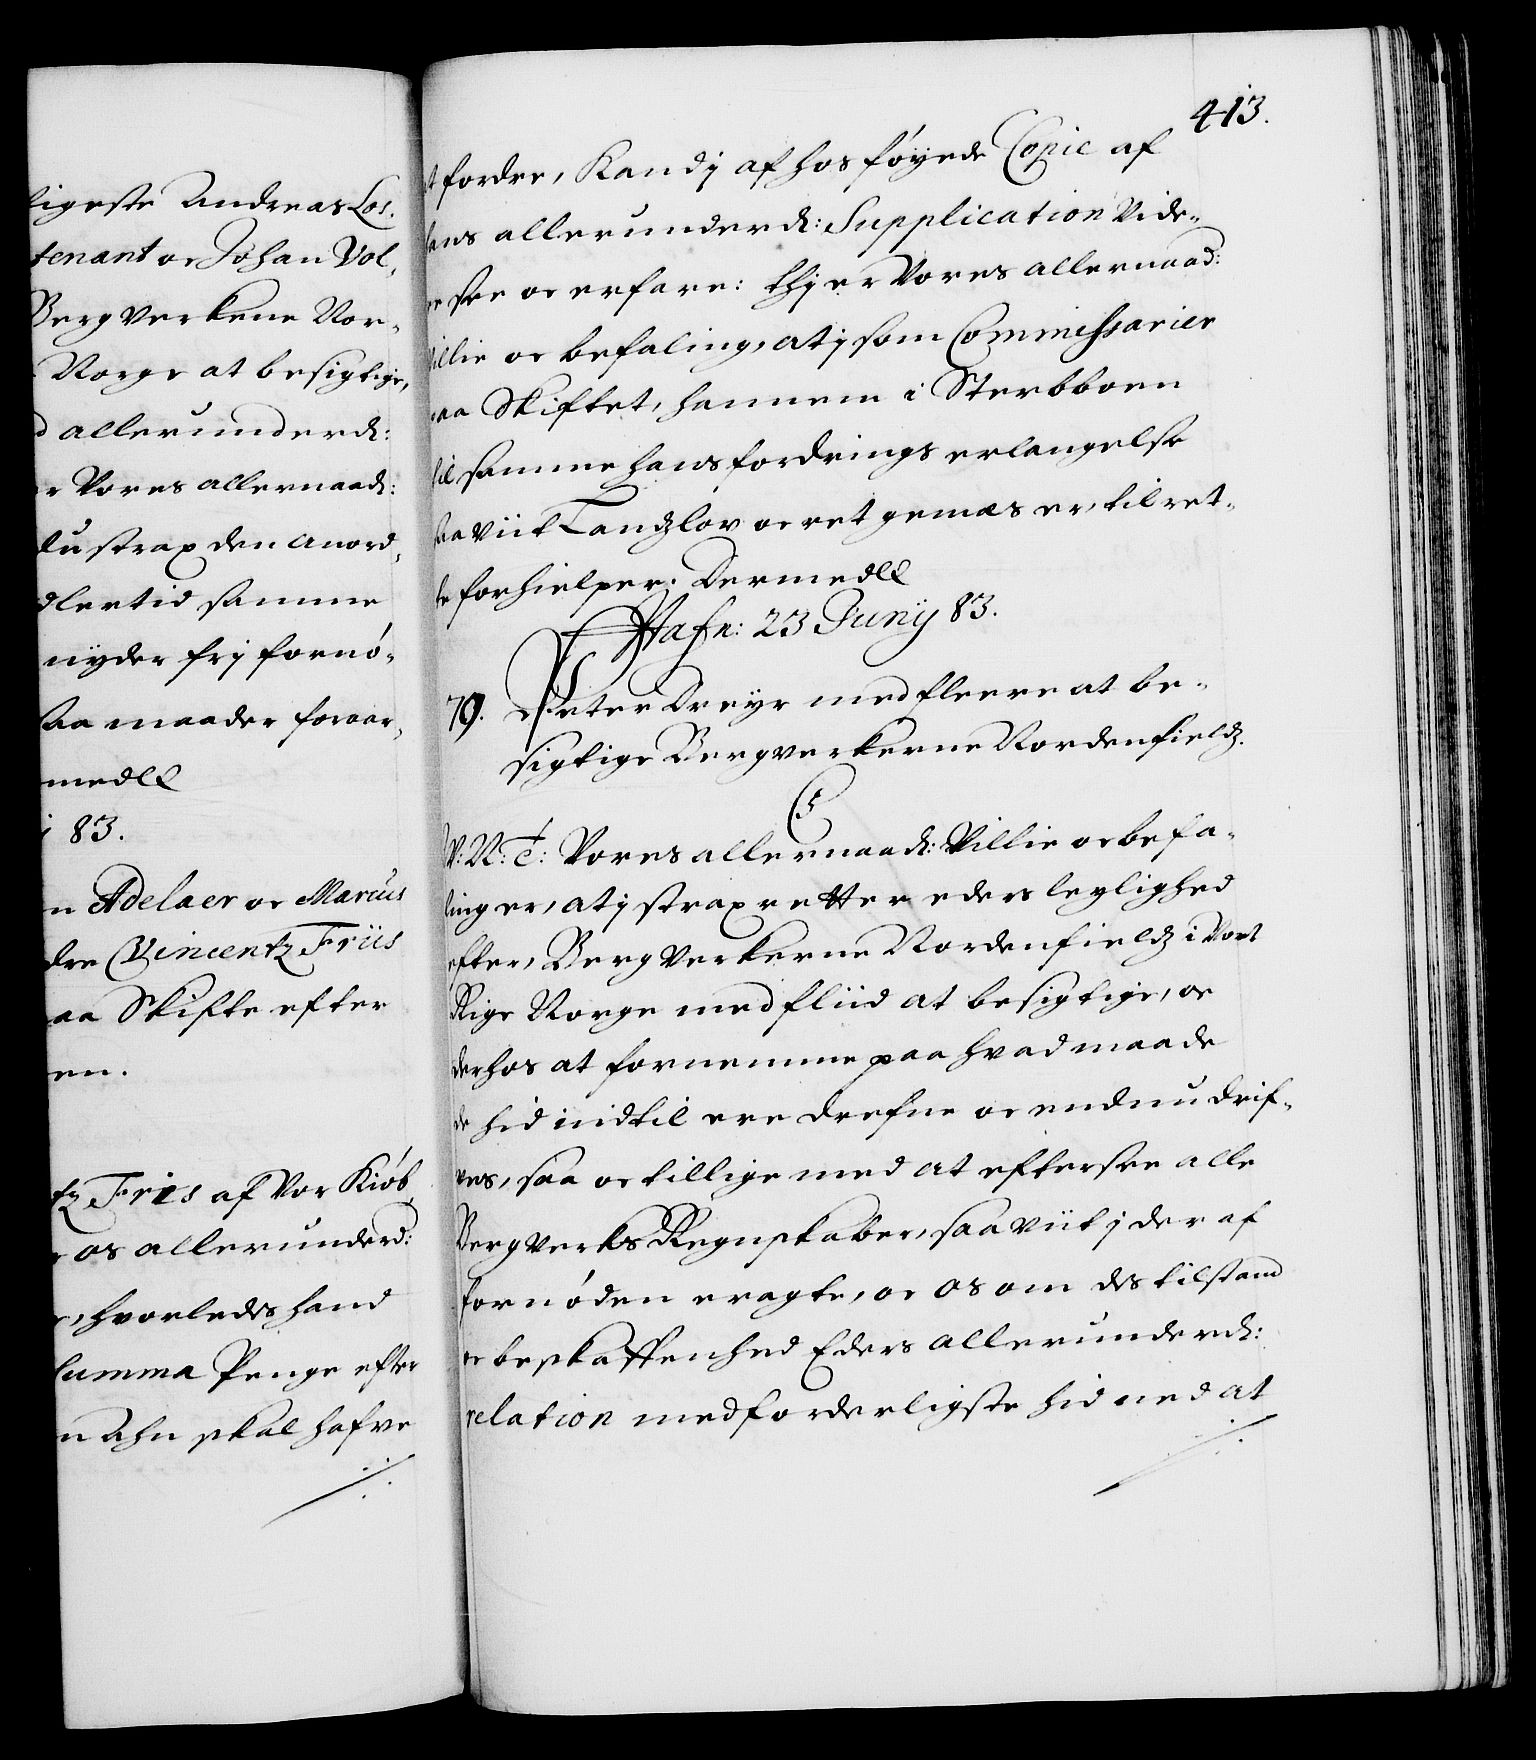 ligeste Andreas Los,
tenant oc Johan Vol,
Bergverkene Nor-
Norge at besigtige,
d allerunderd:
er Vores allernaad:
du strax den anord,
dlertid samme
nyder frj fornö-
saa maader foraar,
medlℓ
j 83.
n Adelaer oc Marcus
dre Vincentz Friis
aa Skifte efter
en.
tz Friis af Vor Kiöb,
os allerunderd:
hvorledes hand
Summa Penge efter
n Ahn skal hafve
·/·
413.
t fordre, Kand j af hos föyede Copie af
hans allerunderd: Supplication vide-
re see oc erfare: thj er Vores allernaad:
Villie oc befaling, at j som Commissarier
paa Skiftet, hannem i Sterbboen
til samme hans fordrings erlangelse
saa viit Landzlov oc ret gemæs er, til ret-
te forhielper. Dermedlℓ
Hafn: 23 Junij 83.
79. Peter Dreyr med fleere at be-
sigtige Bergverkerne Nordenfieldz.
C5
V: N: T: Vores allernaad: Villie oc befa-
ling er, at j strax retter eders leylighed
efter, Bergverkerne Nordenfieldz i Vort
Rige Norge med fliid at besigtige, oc
derhos at fornemme paa hvad maade
de hid indtil ere drefne oc endnu drif-
ves, saa oc tillige med at eftersee alle
Bergverks Regnskaber, saa viit j der af
fornöden eragte, oc os om des tilstand
oc beskaffenhed Eders allerunderd:
relation med forderligste hid ned at
·/·